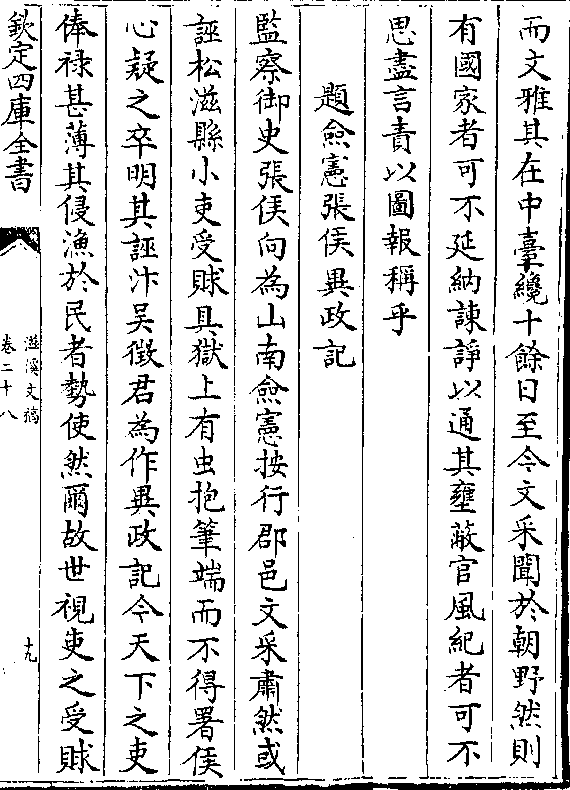 而文雅其在中臺纔十餘日至今文采聞於朝野然則
有國家者可不延納諫諍以通其壅蔽官風紀者可不
思盡言責以圖報稱乎
題僉憲張侯異政記
監察御史張侯向為山南僉憲按行郡邑文采肅然或
誣松滋縣小吏受賕具獄上有虫抱筆端而不得署侯
心疑之卒明其誣汴吳徵君為作異政記今天下之吏
俸禄甚薄其侵漁於民者勢使然爾故世視吏之受賕
欽定四庫全書
滋溪文稿
卷二十八
十九